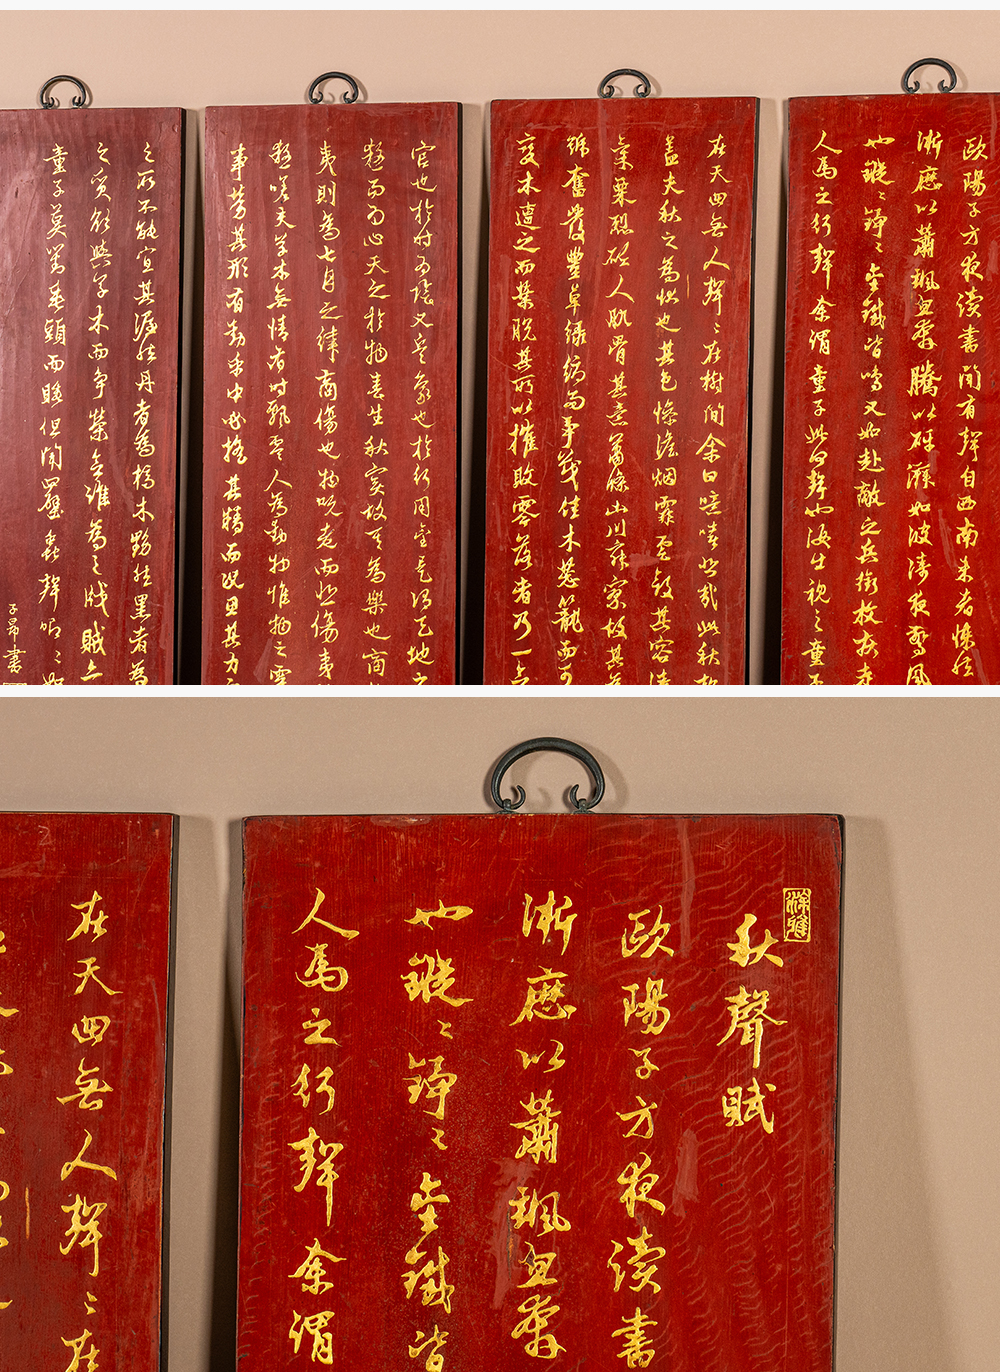 歐陽子方夜讀書聞有聲自西南来者悚然
淅瀝以蕭颯忽奔騰以砰湃如波濤夜驚風
也鏦〻錚〻金鐵皆鳴又如赴敵之兵銜枚疾走
人馬之行聲余謂童子此何聲也汝出視之童子
在天四無人聲〻在樹間余曰噫嘻悲哉此秋聲
蓋夫秋之為狀也其色慘淡烟霏雲斂其容清
氣栗烈砭人肌骨其意蕭條山川寂寥故其為
號奮發豐草綠縟而爭茂佳木葱蘢而可
變木遭之而葉脫其所以摧敗零落者乃一
官也於時為陰又兵象也於行用金是謂天地之
殺而為心天之於物春生秋實故其為樂也商
夷則為七月之律商傷也物既老而悲傷夷
殺嗟夫草木無情有時飄零人為動物惟物之靈
事勞其形有動乎中必搖其精而況思其力
之所不能宜其渥然丹者為槁木黟然黑者為
之質欲與草木而爭榮念誰為之戕賊亦
童子莫對垂頭而睡但聞四壁蟲聲唧〻如
子昂書
秋聲賦
歐陽子方夜讀書
淅瀝以蕭颯忽奔
也鏦〻錚〻金鐵皆
人馬之行聲余謂
在天四無人聲〻在